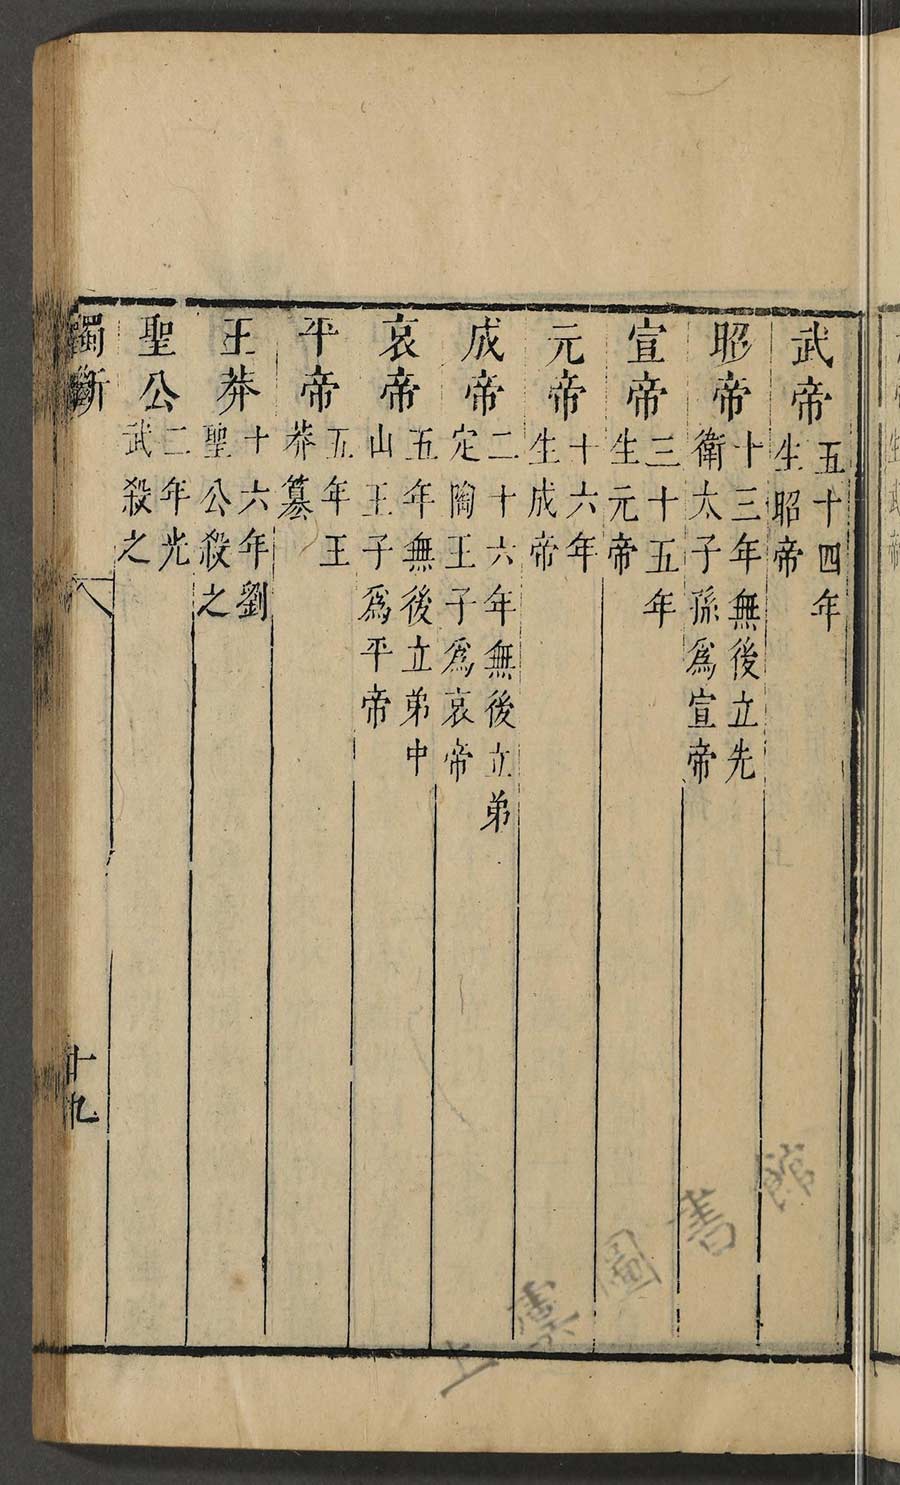 武帝 五十四年生昭帝
昭帝 十三年無後立先衛太子孫為宣帝
宣帝 三十五年生元帝
元帝 十六年生成帝
成帝 二十六年無後立弟定陶王子為哀帝
哀帝 五年無後立弟中山王子為平帝
平帝 五年王莽篡
王莽 十六年劉聖公殺之
聖公 二年光武殺之
獨斷
十九
上虞圖書館